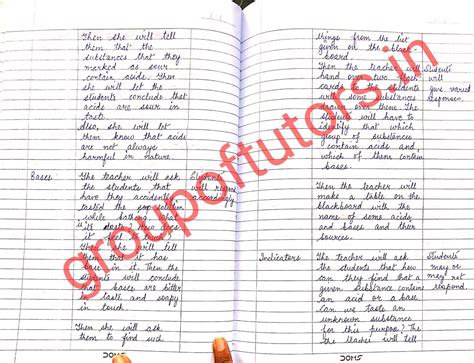 Then she will tell
them that the
substances that they
marked as sour
contain acids. Then
she will let the
students conclude that
acids are sour in
taste.
Also, she will let
them know that acids
are not always
harmful in nature.
Bases
The teacher will ask
the students that
have they accidently
tasted the
while bathing, that
is How does
it feel
she will tell
them that it has
base in it. Then the
students will conclude
that bases are bitter
in taste and soapy
in touch.
Students
will respond
accordingly
Then she will ask
them to find such
things from the list
given on the black
board.
Then the teacher will
hand over two flash
cards to the students
with some substances
drawn over them. The
students will have to
identify that which
group of substances
contain acids and
which of them contain
bases.
Students
give varied
responses.
Then the teacher will
make a table on the
blackboard with the
name of some acids
and bases and their
sources.
Indicators
The teacher will ask
the students that how
can they find that a
given substance contains
an acid or a base.
Can we taste an
unknown substance
for this purpose? The
the teacher will tell
Students
may or
may not
respond.
groupoftutors.in